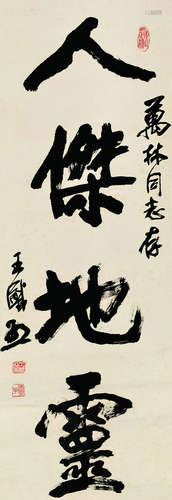 人傑地靈
萬林同志存
王國